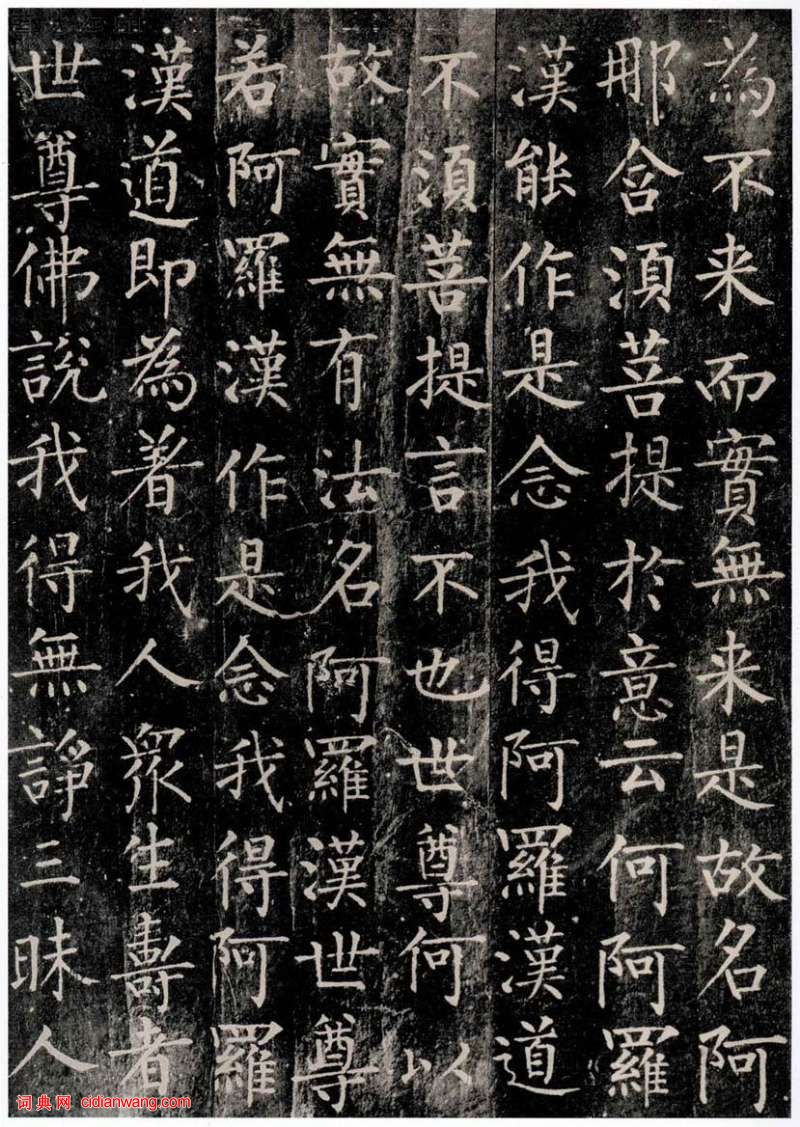 為不来而實無来是故名阿
那含須菩提於意云何阿羅
漢能作是念我得阿羅漢道
不須菩提言不也世尊何以
故實無有法名阿羅漢世尊
若阿羅漢作是念我得阿羅
漢道即為著我人眾生壽者
世尊佛說我得無諍三昧人
词典网 cidianwang.com